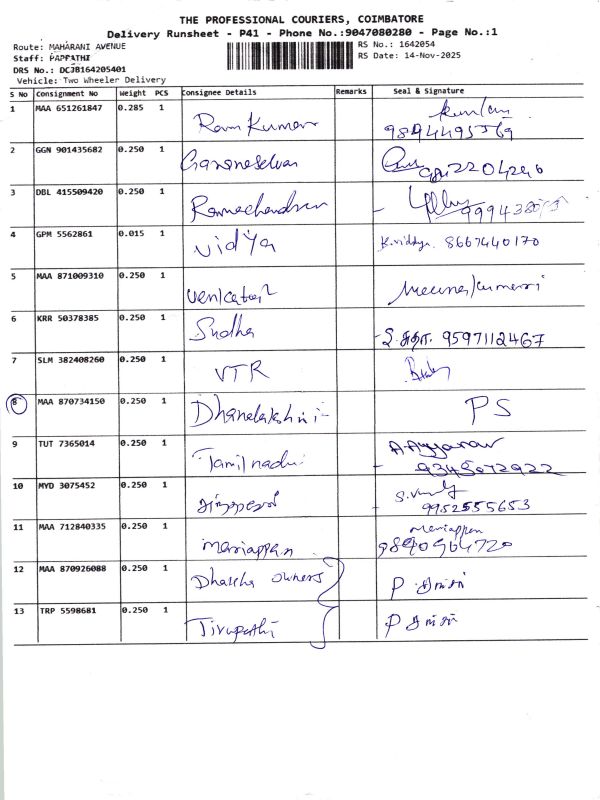 THE PROFESSIONAL COURIERS, COIMBATORE
Delivery Runsheet - P41 - Phone No.:9047080280 - Page No.:1
Route: MAHARANI AVENUE RS No.: 1642054
Staff: PAPPATHI RS Date: 14-Nov-2025
DRS No.: DCJB164205401
Vehicle: Two Wheeler Delivery
S No Consignment No Weight PCS Consignee Details Remarks Seal & Signature
1 MAA 651261847 0.285 1 Ram Kumar
2 GGN 901435682 0.250 1
3 DBL 415509420 0.250 1 Ramachandran
4 GPM 5562861 0.015 1 vidya K.vidhya 8667440170
5 MAA 871009310 0.250 1 venkatesh
6 KRR 50378385 0.250 1 Sudha 9597112467
7 SLM 382408260 0.250 1 VTR
8 MAA 870734150 0.250 1 PS
9 TUT 7365014 0.250 1 Tamilnadu
9345072922
10 MYD 3075452 0.250 1
9952555653
11 MAA 712840335 0.250 1 mariappan mariappan
9840964720
12 MAA 870926088 0.250 1 owners
13 TRP 5598681 0.250 1 Tirupathi